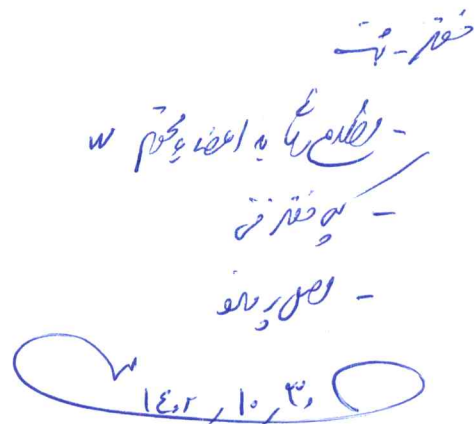 دفتر - ثبت
- اطلاع رسانی به اعضای محترم
- کپی دفتر فنی
- اصل پرونده
۱۴۰۲/۱۰/۳۰